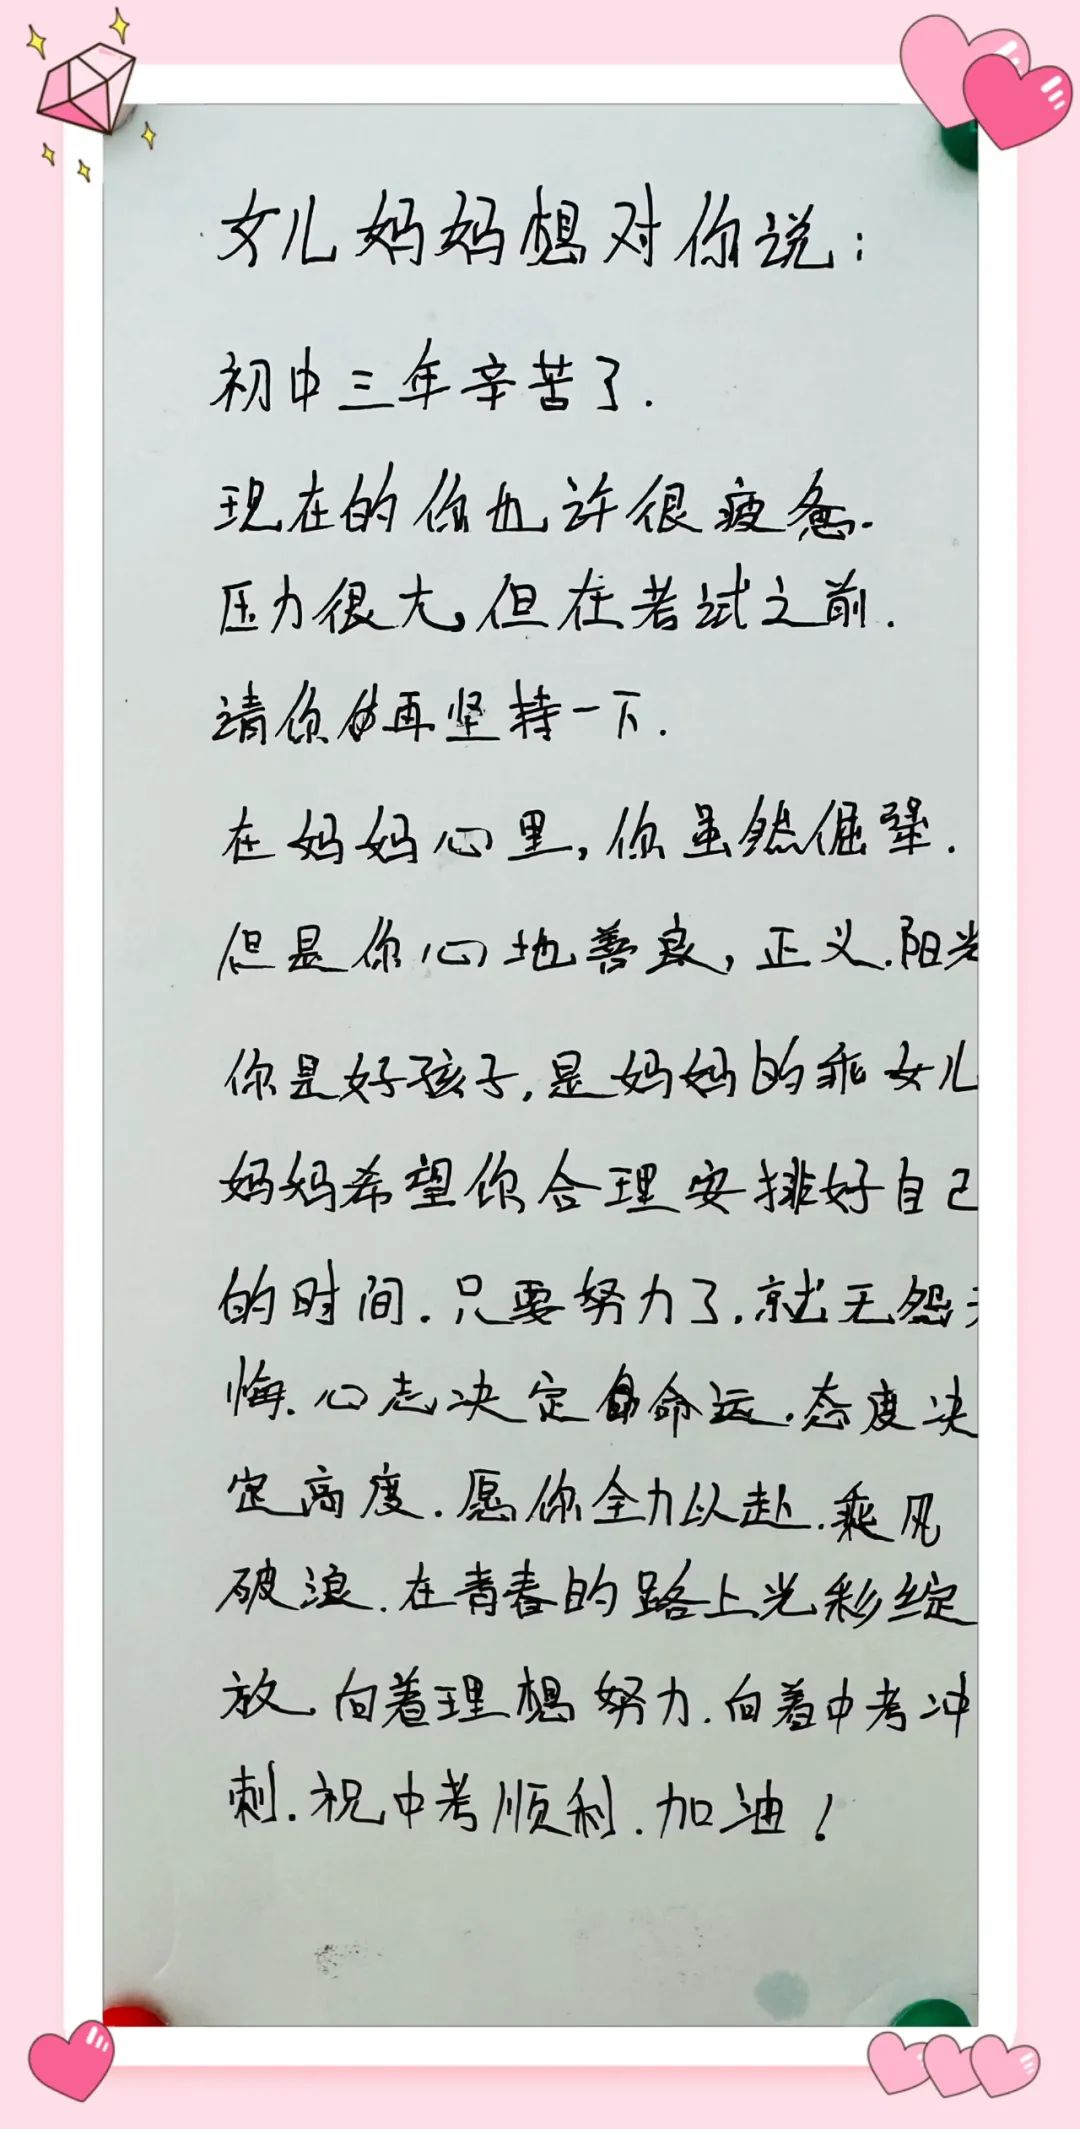 女儿妈妈想对你说：
初中三年辛苦了.
现在的你也许很疲惫.
压力很大,但在考试之前.
请你再坚持一下.
在妈妈心里,你虽然倔犟.
但是你心地善良,正义.阳光
你是好孩子,是妈妈的乖女儿
妈妈希望你合理安排好自己
的时间.只要努力了.就无怨
悔.心志决定命运.态度决
定高度.愿你全力以赴.乘风
破浪.在青春的路上光彩绽
放.向着理想努力.向着中考冲
刺.祝中考顺利.加油！